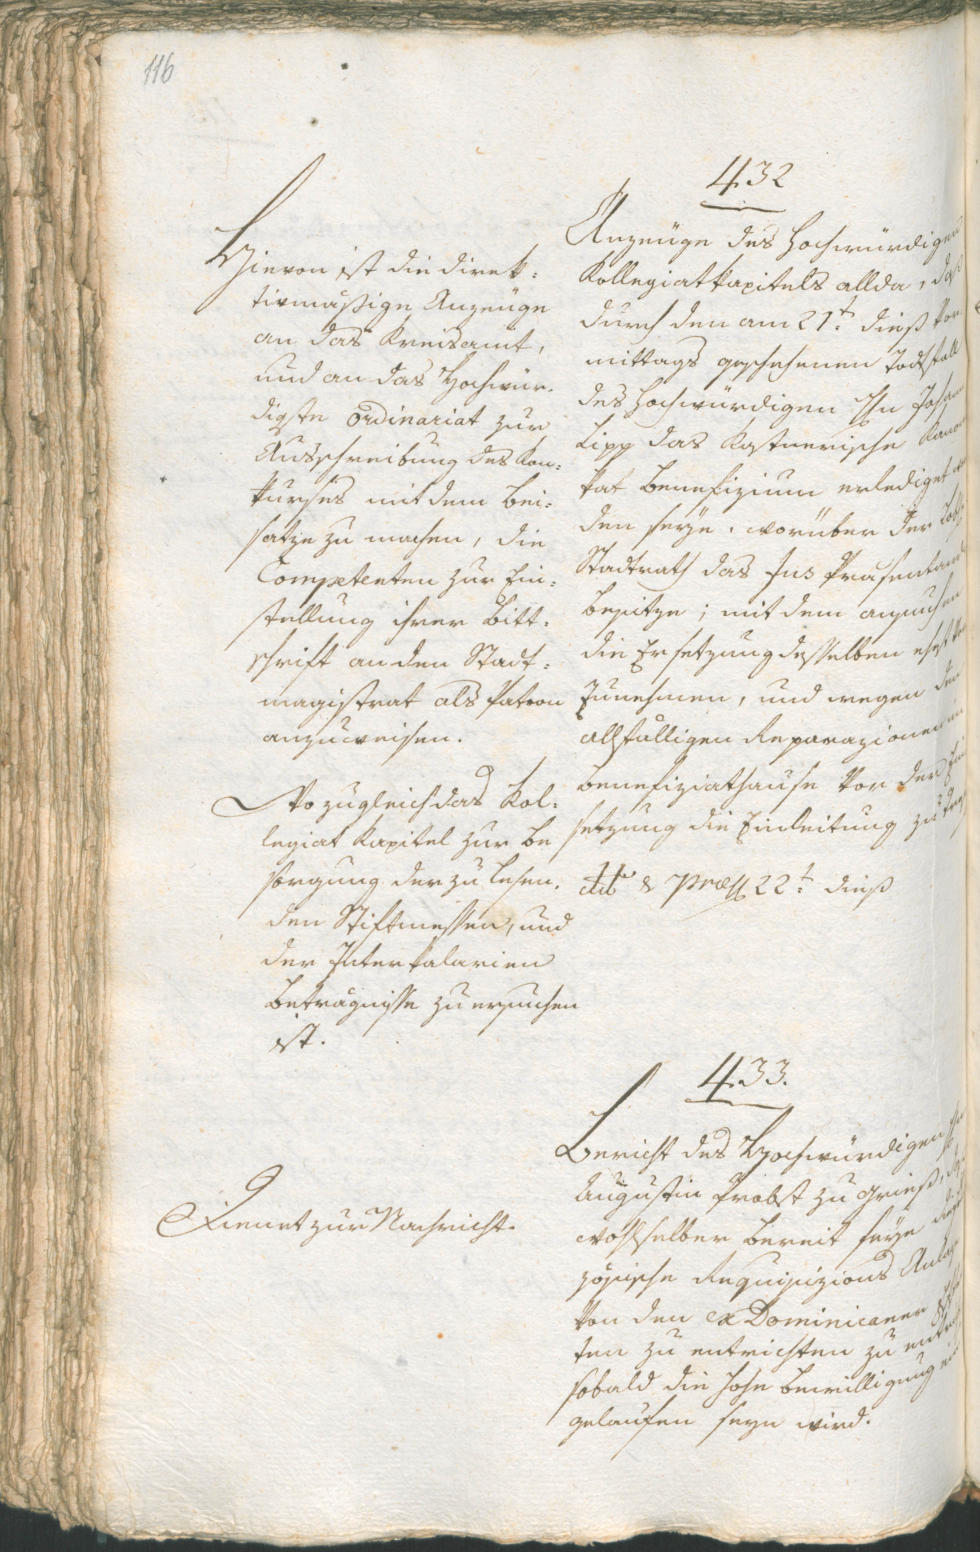 116
432
Anzeüge des Hochwürdigen
Kollegiatkapitels allda, daß
durch den am 21t. dieß Vor
mittags geschehenen Todfall
des Hochwürdigen Hn Johann
Lipp das Kastnerische
kat Benefizium erlediget
den seye. worüber der
Stadtrath das Jus Präsentandi
besitze; mit dem ansuchen
die Ersetzung desselben
zunehmen, und wegen den
allfälligen Reparazionen im
Benefiziathause vor der
setzung die Einleitung zu
& Præss 22t. dieß
Hievon ist die direk:
tivmäßige Anzeüge
an das Kreisamt,
und an das Hochwür:
digste Ordinariat zur
Ausschreibung des Kon:
kurses mit dem Bei:
satze zu machen, die
Competenten zur Ein:
stellung ihrer Bitt:
schrift an den Stadt:
magistrat als Patron
anzuweisen.
Wo zugleich das Kol:
legiat Kapitel zur Be
sorgung der zu lesen:
den Stiftmessen, und
der Interkalarien
Beträgnisse zu ersuchen
ist.
433.
Bericht des Hochwürdigen
Augustin Probst zu Grieß,
wohlselber bereit seye
zösische Requisizions
von den ex Dominicaner
ten zu entrichten zu
sobald die hohe Bewilligung ein
gelaufen seyn wird.
Dienet zur Nachricht.